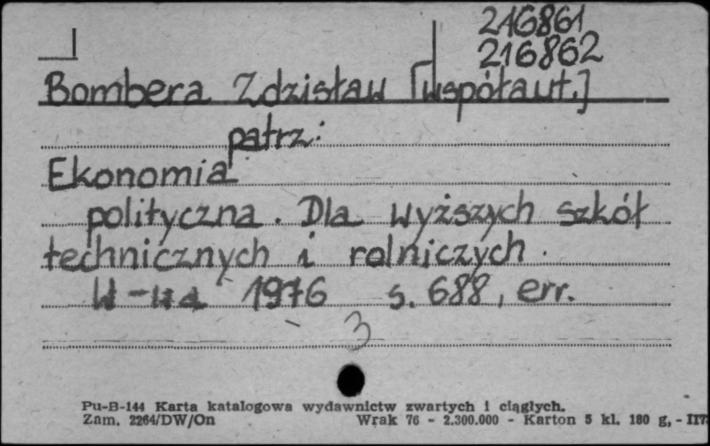 216861
216862
Bombera Zdzisław [współaut.]
patrz:
Ekonomia
polityczna. Dla wyższych szkół
technicznych i rolniczych.
W-wa 1976 s. 688, err.
3
Pu-B-144 Karta katalogowa wydawnictw zwartych i ciągłych.
Zam. 2264/DW/On Wrak 76 - 2.300.000 - Karton 5 kl. 180 g, -